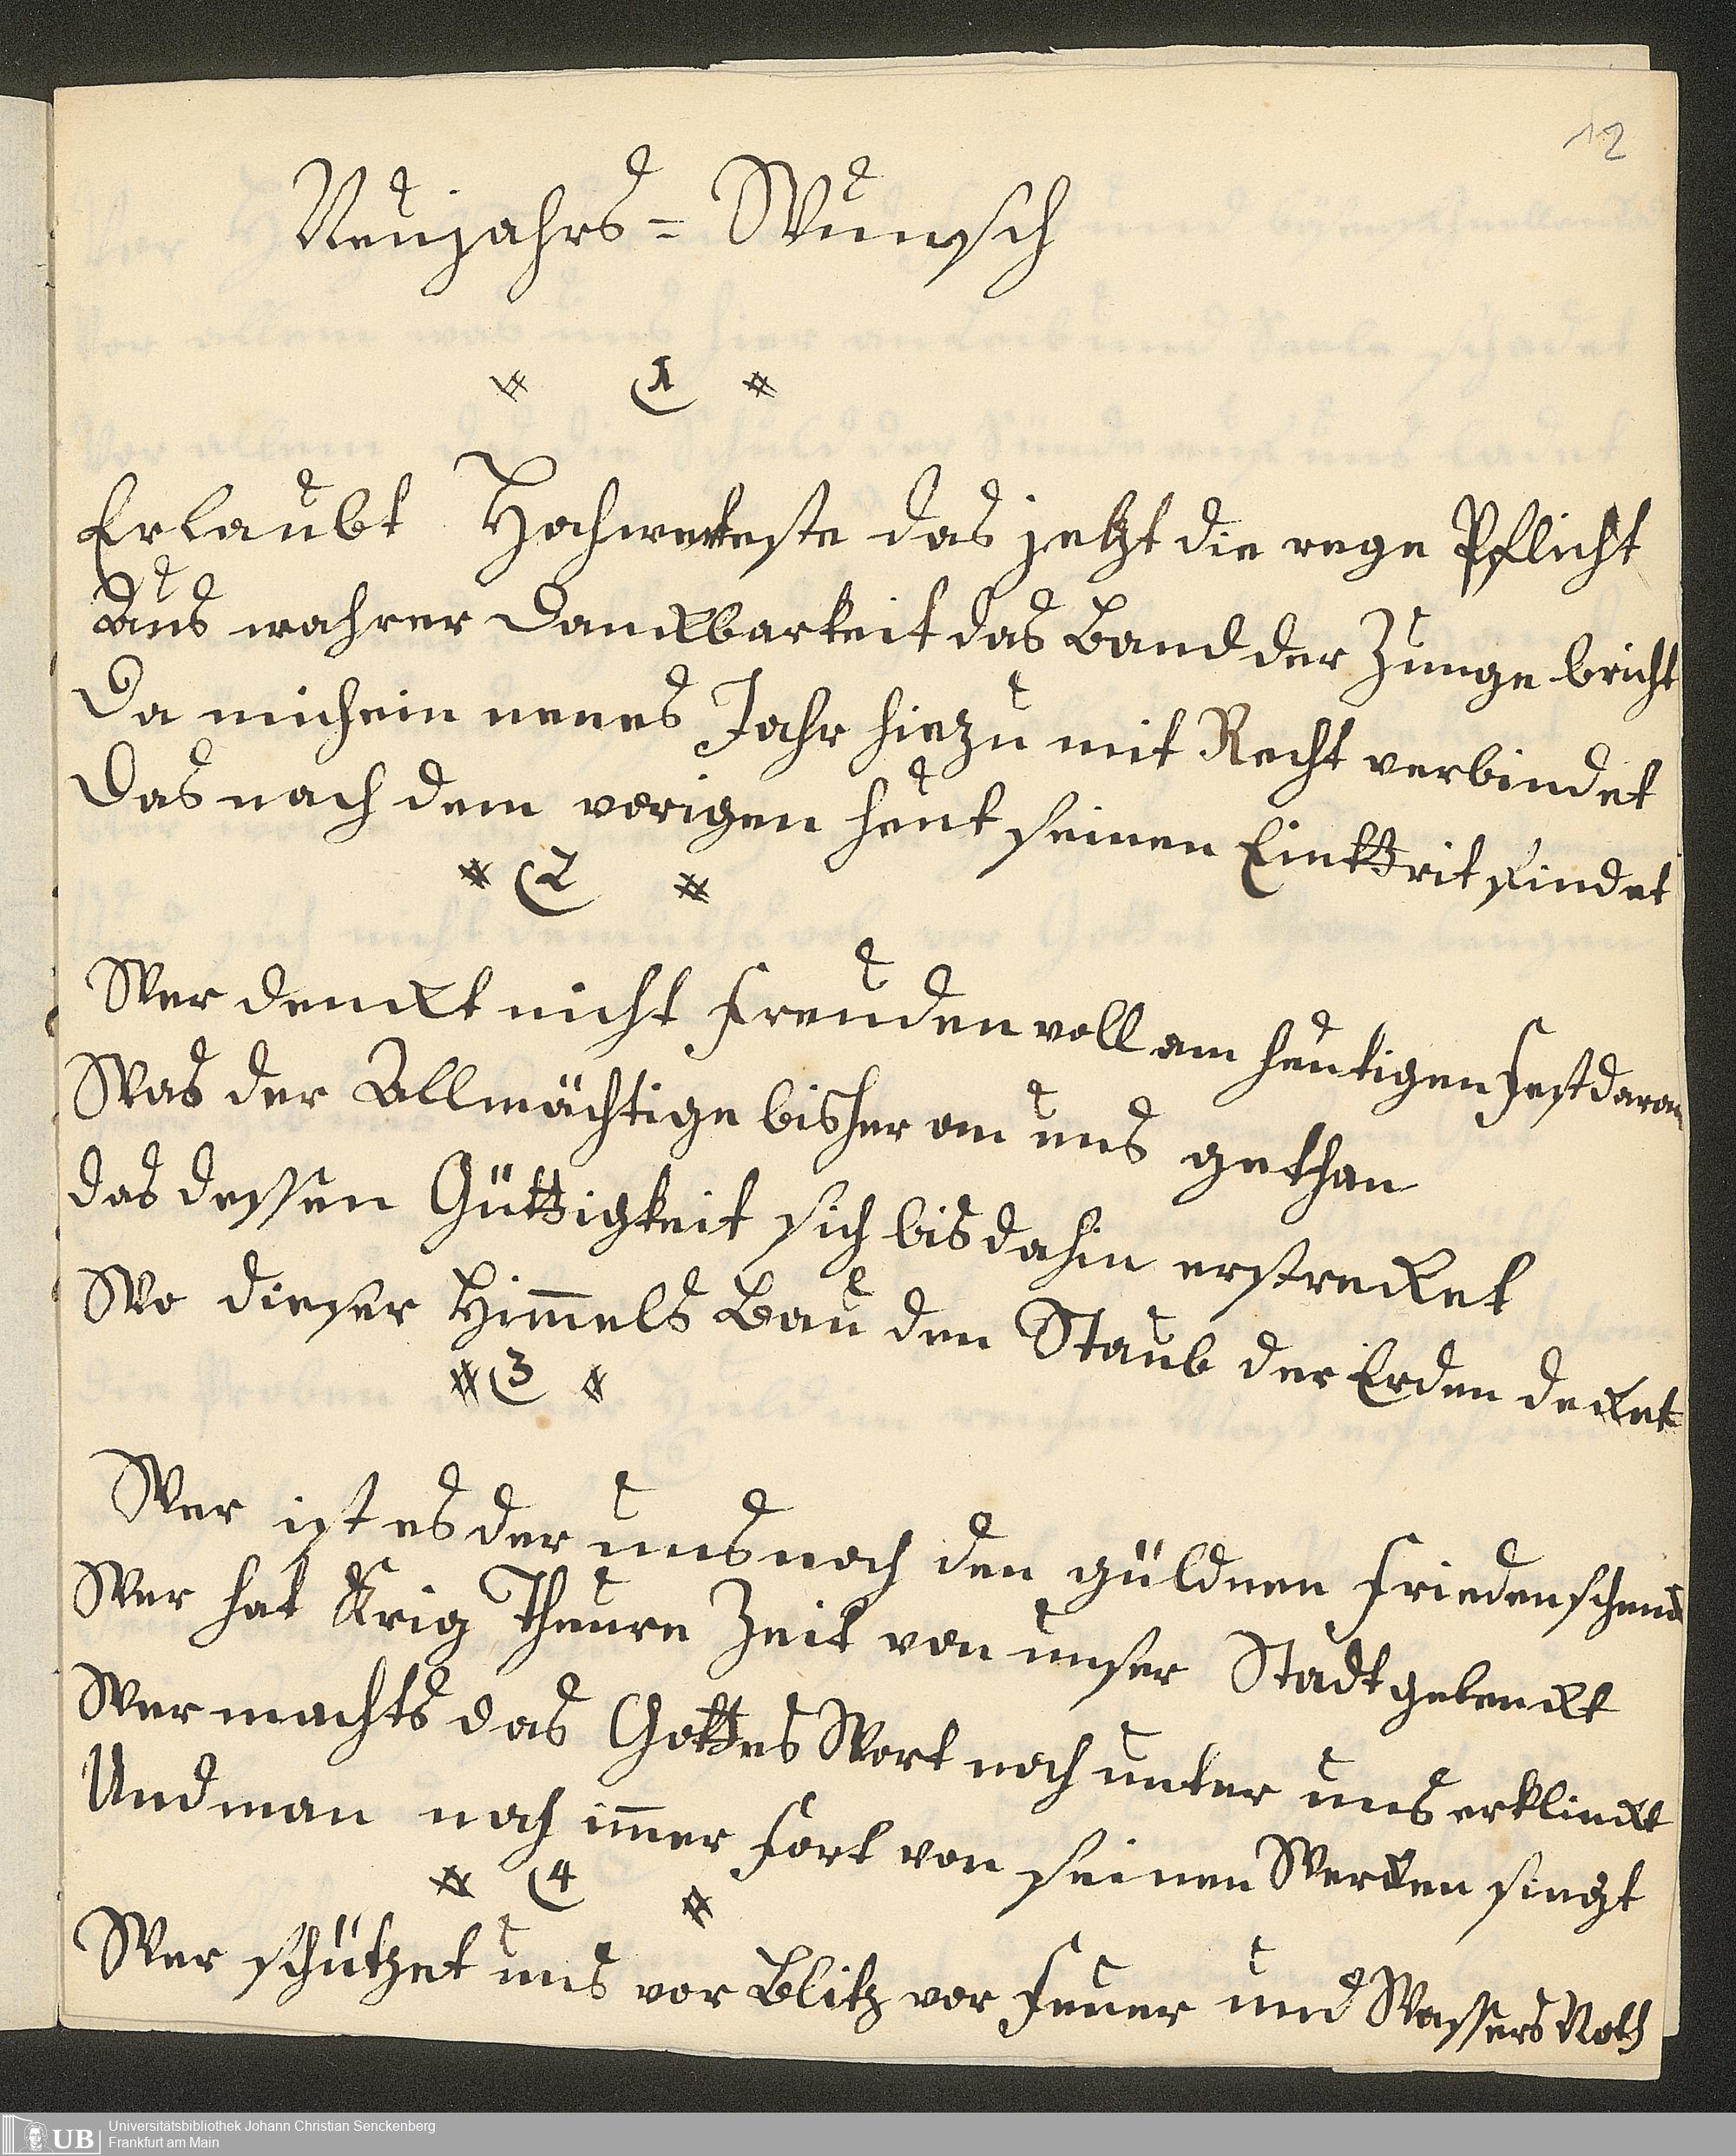 12
Neujahrs= Wunsch
# (1 #
Erlaubt Hochwerteste das jetzt die rege Pflicht
Aus wahrer Danckbarkeit das Band der Zunge bricht
Da mich ein neues Jahr hiezu mit Recht verbindet
Das nach dem vorigen heut seinen Einttrit findet
# (2 #
Wer denckt nicht freuden voll am heutigen Fest daran
Was der Allmächtige bisher an uns gethan
das dessen Güttigkeit sich bis dahin erstrecket
Wo dieser Him̅els Bau den Staub der Erden decket
# (3 #
Wer ist es der uns noch den güldnen Frieden schenckt
Wer hat Krig Theure Zeit von unser Stadt gelenckt
Wer machts das Gottes Wort noch unter uns erklinckt
Und man noch im̅er fort von seinen Wercken singt
# (4 #
Wer schützet uns vor Blitz vor Feuer und Wassers Noth
UB
Universitätsbibliothek Johann Christian Senckenberg
Frankfurt am Main